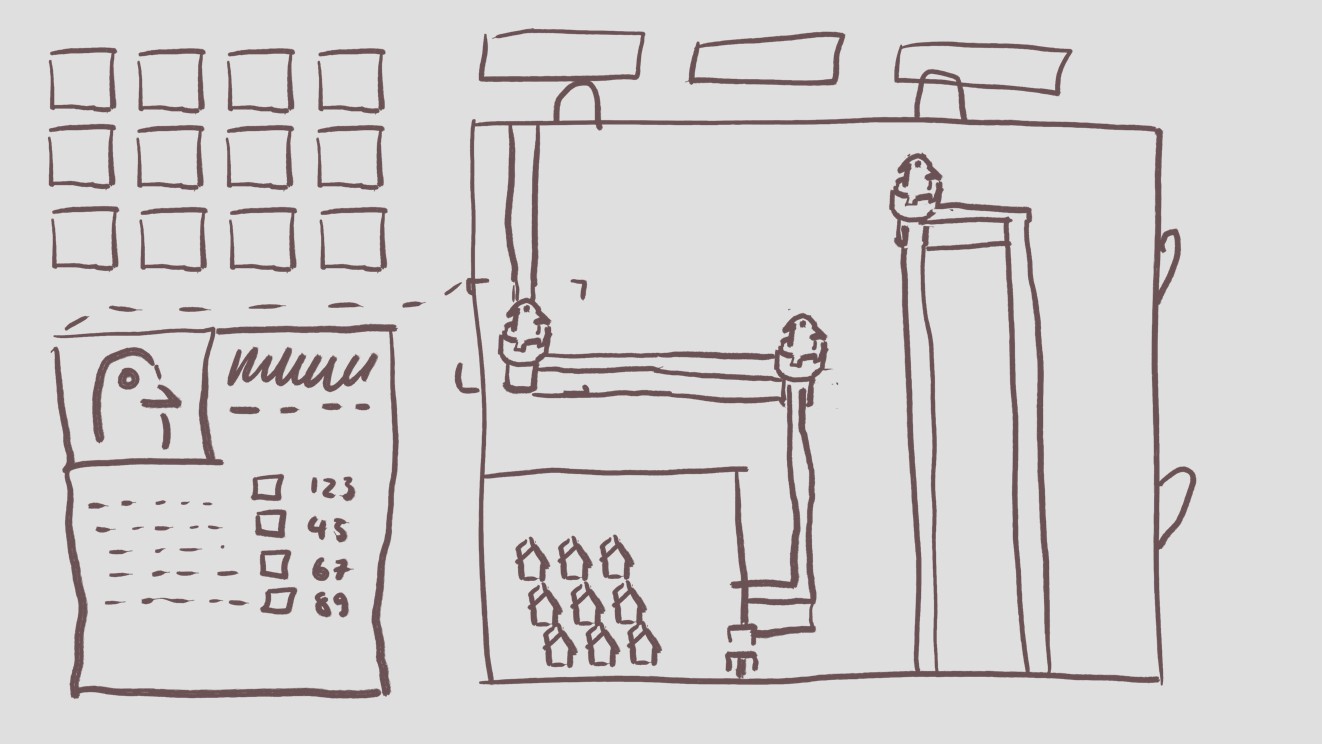 123
45
67
89